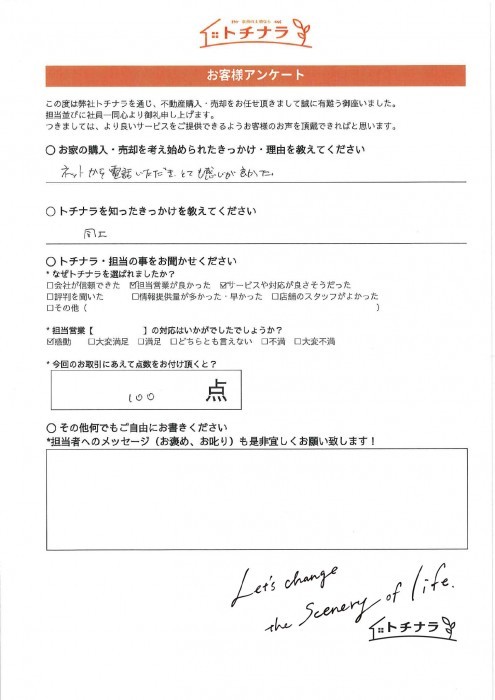 トチナラ
お客様アンケート
この度は弊社トチナラを通じ、不動産購入・売却をお任せ頂きまして誠に有難う御座いました。
担当並びに社員一同心より御礼申し上げます。
つきましては、より良いサービスをご提供できるようお客様のお声を頂戴できればと思います。
〇 お家の購入・売却を考え始められたきっかけ・理由を教えてください
ネットから電話いただき とても感じが良かった。
〇 トチナラを知ったきっかけを教えてください
同上
〇 トチナラ・担当の事をお聞かせください
* なぜトチナラを選ばれましたか？
□会社が信頼できた ☑担当営業が良かった ☑サービスや対応が良さそうだった
□評判を聞いた □情報提供量が多かった・早かった □店舗のスタッフがよかった
□その他（ ）
* 担当営業【 】の対応はいかがでしたでしょうか？
☑感動 □大変満足 □満足 □どちらとも言えない □不満 □大変不満
* 今回のお取引にあえて点数をお付け頂くと？
100 点
〇 その他何でもご自由にお書きください
*担当者へのメッセージ（お褒め、お叱り）も是非宜しくお願い致します！
Let's change
the Scenery of life.
トチナラ